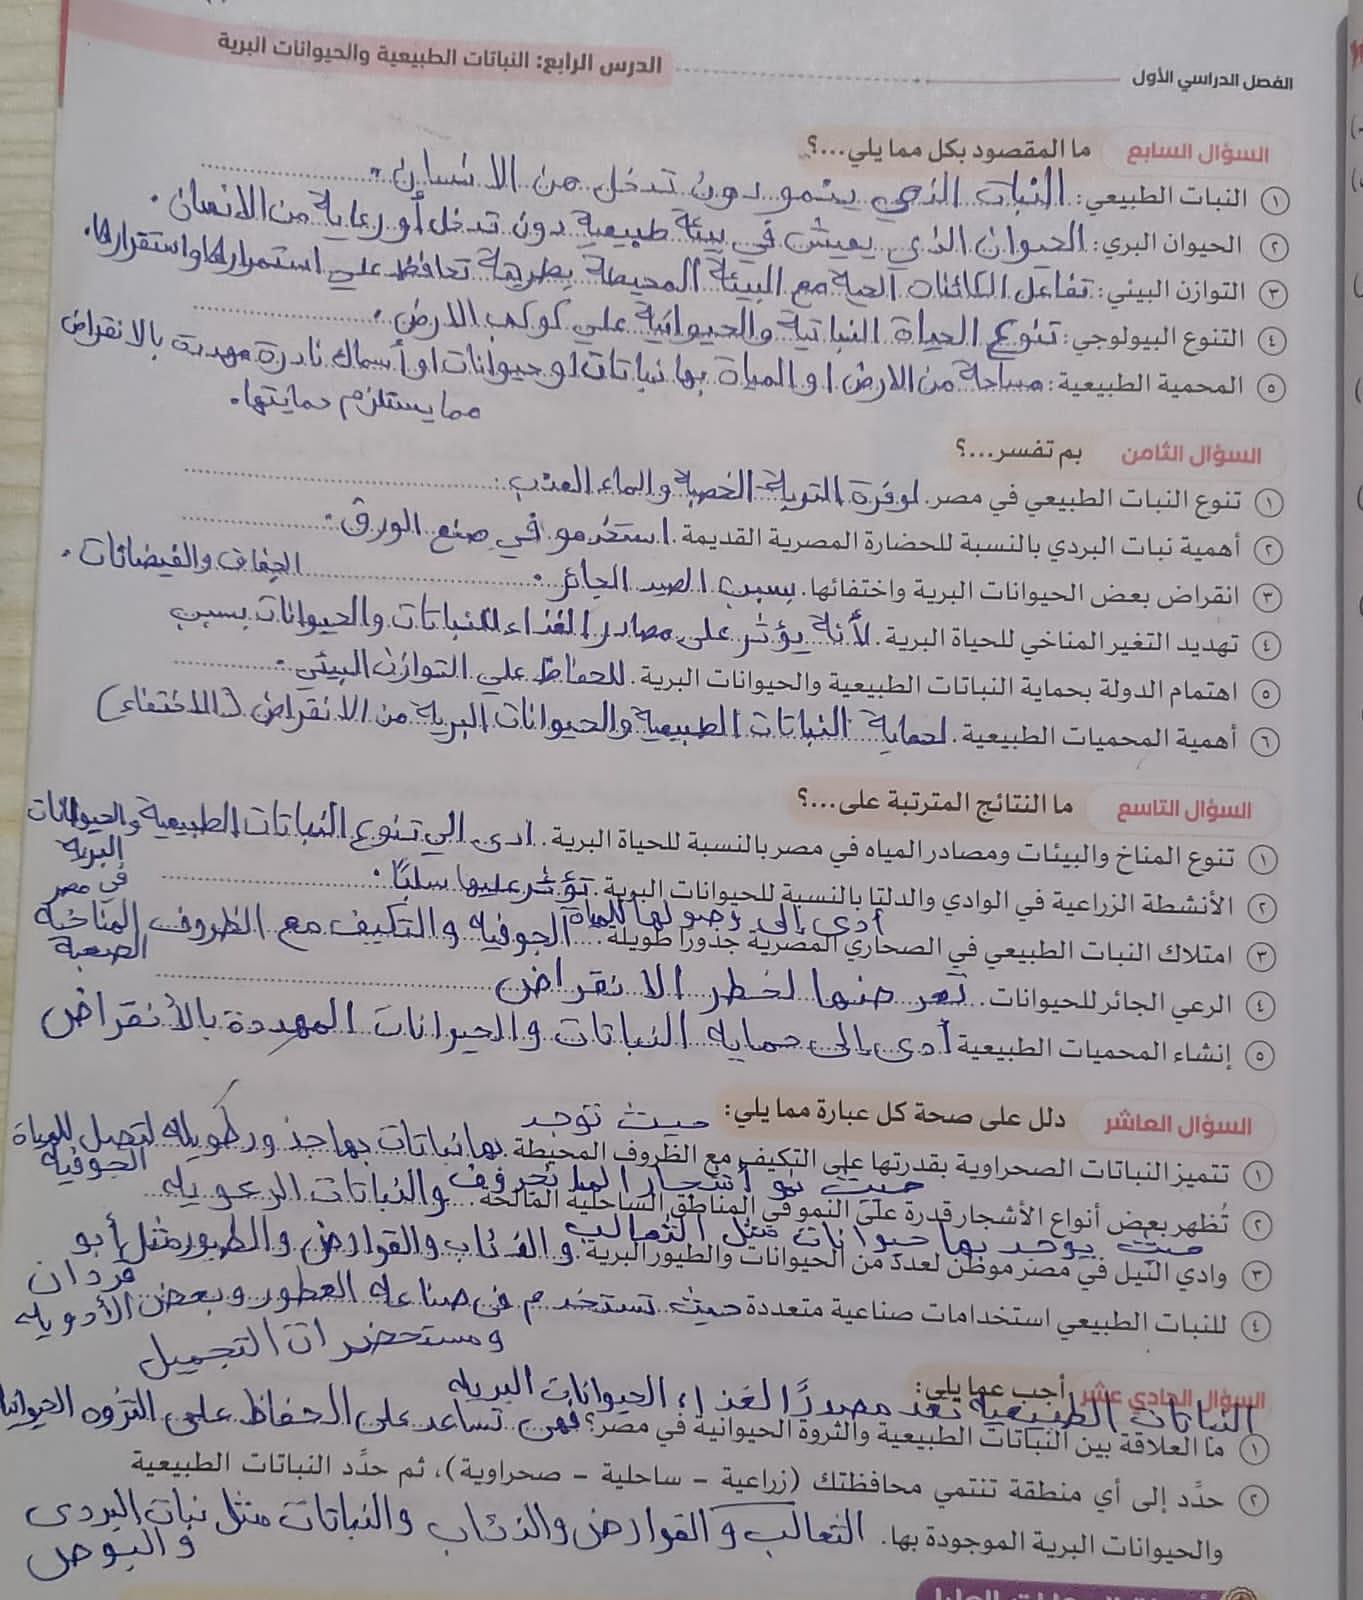 الفصل الدراسي الأول
الدرس الرابع: النباتات الطبيعية والحيوانات البرية
السؤال السابع ما المقصود بكل مما يلي...؟
١ النبات الطبيعي: النبات الذي ينمو دون تدخل من الانسان.
٢ الحيوان البري: الحيوان الذي يعيش في بيئة طبيعية دون تدخل أو رعاية من الانسان.
٣ التوازن البيئي: تفاعل الكائنات الحية مع البيئة المحيطة بطريقة تحافظ علي استمرارها واستقرارها.
٤ التنوع البيولوجي: تنوع الحياة النباتية والحيوانية علي كوكب الارض.
٥ المحمية الطبيعية: مساحة من الارض او المياة بها نباتات او حيوانات او أسماك نادرة مهددة بالانقراض
مما يستلزم حمايتها.
السؤال الثامن بم تفسر...؟
١ تنوع النبات الطبيعي في مصر. لوفرة التربة الخصبة والماء العذب.
٢ أهمية نبات البردي بالنسبة للحضارة المصرية القديمة. استخدمو في صنع الورق.
٣ انقراض بعض الحيوانات البرية واختفائها. بسبب الصيد الجائر.
الجفاف والفيضانات.
٤ تهديد التغير المناخي للحياة البرية. لأنة يؤثر على مصادر الغذاء للنباتات والحيوانات بسبب
٥ اهتمام الدولة بحماية النباتات الطبيعية والحيوانات البرية. للحفاظ علي التوازن البيئي.
٦ أهمية المحميات الطبيعية. لحماية النباتات الطبيعية والحيوانات البرية من الانقراض (الاختفاء)
السؤال التاسع ما النتائج المترتبة على...؟
١ تنوع المناخ والبيئات ومصادر المياه في مصر بالنسبة للحياة البرية. ادى الي تنوع النباتات الطبيعية والحيوانات
البرية
في مصر
٢ الأنشطة الزراعية في الوادي والدلتا بالنسبة للحيوانات البرية. تؤثر عليها سلبًا.
أدى إلى وصولها للمياة
٣ امتلاك النبات الطبيعي في الصحاري المصرية جذورًا طويلة. الجوفية والتكيف مع الظروف المناخية
الصعبة
٤ الرعي الجائر للحيوانات. تعرضها لخطر الانقراض
٥ إنشاء المحميات الطبيعية أدى إلى حماية النباتات والحيوانات المهددة بالأنقراض
السؤال العاشر دلل على صحة كل عبارة مما يلي: حيث توجد
١ تتميز النباتات الصحراوية بقدرتها على التكيف مع الظروف المحيطة. بها نباتات بها جذور طويله لتصل للمياة
الجوفية
حيث نمو أشجار المانجروف
٢ تُظهر بعض أنواع الأشجار قدرة على النمو في المناطق الساحلية المالحة. والنباتات الرعويله
حيث يوجد بها حيوانات مثل الثعالب
٣ وادي النيل في مصر موطن لعدد من الحيوانات والطيور البرية. والذئاب والقوارض والطيور مثل أبو
قردان
٤ للنبات الطبيعي استخدامات صناعية متعددة حيث تستخدم فى صناعة العطور وبعض الأدويله
ومستحضرات التجميل
السؤال الحادي عشر أجب عما يلي:
النباتات الطبيعية تعد مصدرًا لغذاء الحيوانات البريه
١ ما العلاقة بين النباتات الطبيعية والثروة الحيوانية في مصر؟ فهى تساعد على الحفاظ على الثروه الحيوانية
٢ حدِّد إلى أي منطقة تنتمي محافظتك (زراعية – ساحلية – صحراوية)، ثم حدِّد النباتات الطبيعية
والحيوانات البرية الموجودة بها. الثعالب والقوارض والذئاب والنباتات مثل نبات البردى
والبوص